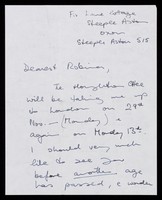 Lane Cottage
Steeple Aston
Oxon
Steeple Aston 515
Dearest
The
will be taking me up
to London on 29th
Nov. (Monday) &
again on Monday 13th.
I should very much
like to see you
before another age
has passed, &